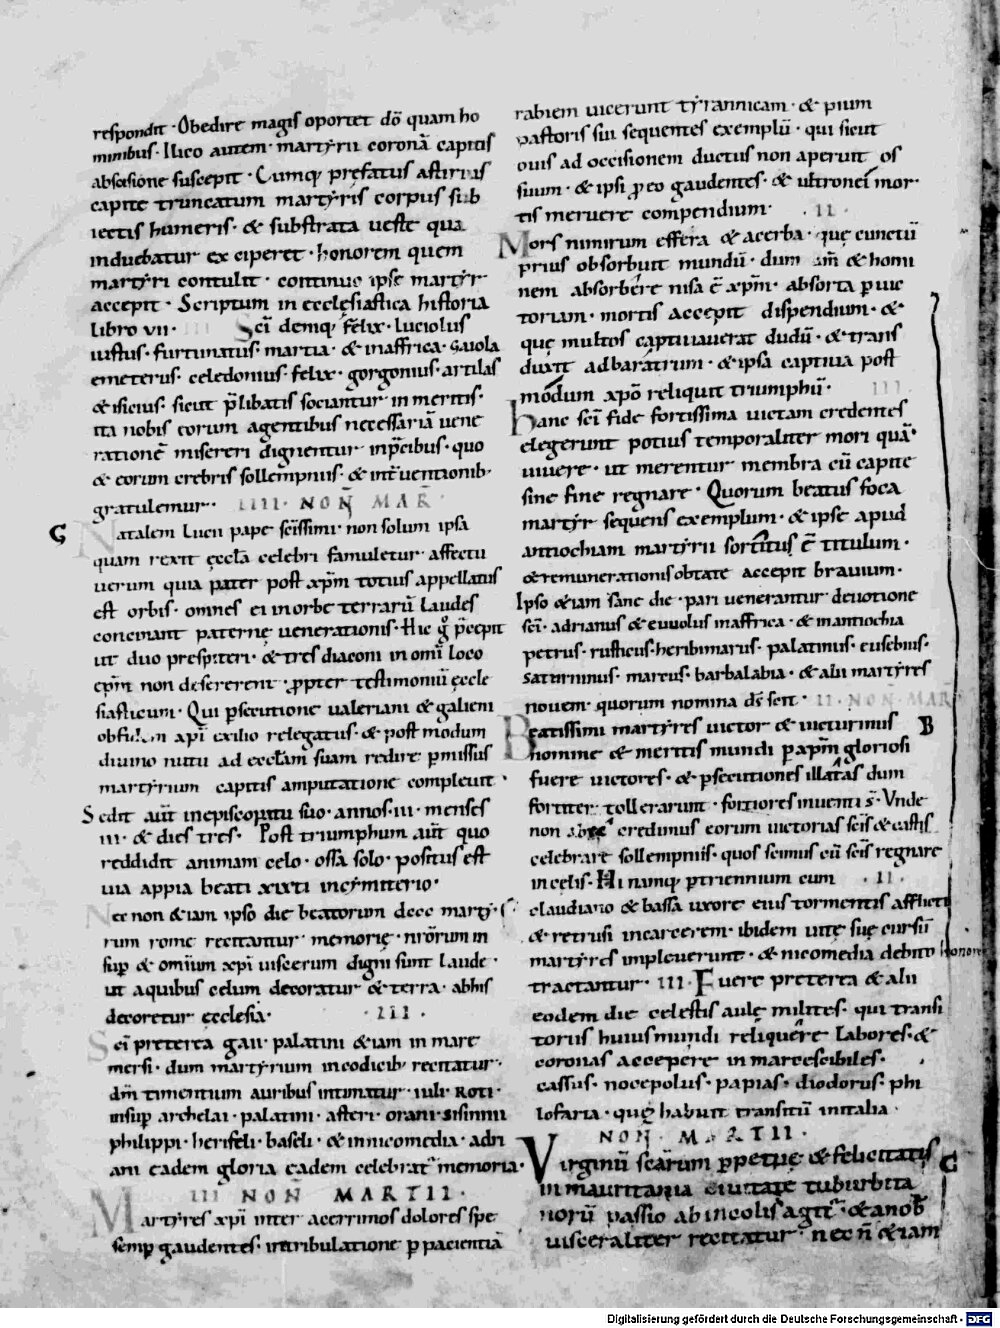 respondit · Obedire magis oportet dō quam ho
minibus · Ilico autem · martyrii coronā capitis
abscisione suscepit · Cumq; prefatus astirius
capite truncatum martyris corpus sub
iectis humeris · & substrata ueste qua
induebatur exciperet · honorem quem
martyri contulit · continuo ipse martyr
accepit · Scriptum in ecclesiastica historia
libro vii · III Scī demq; felix · luciolus
iustus · furtunatus · martia · & inaffrica · Gaiola
emeterus · celedonius · felix · gorgonius · artilas
& isicius · sicut p̄libatis sociantur in meritis ·
ita nobis eorum agentibus necessariā uene
rationē misereri dignentur inp̄cibus · quo
& eorum crebris sollempniis · & int̄uentionib·
gratulemur · IIII · NOÑ MAR̄ ·
G Natalem Lucii pape scīssimi · non solum ipsa
quam rexit ęccl̄a celebri famuletur · affectu
uerum quia pater post xp̄m totius appellatus
est orbis · omnes ei inorbe terrarū laudes
concinant paternę uenerationis · Hic g° p̄cepit
ut duo presbiteri · & tres diaconi in omī loco
ep̄m non desererent · ꝓpter testimoniū ęccle
siasticum · Qui ꝑsecutione ualeriani & galieni
obfidem xp̄i exilio relegatus · & post modum
diuino nutu ad eccl̄am suam redire ꝑmissus
martyrium capitis amputatione compleuit ·
Sedit aūt inepiscopatu suo · annos · iii · menses
iii · & dies tres · Post triumphum aūt quo
reddidit animam celo · ossa solo · positus est
uia appia beati xixti incymiterio ·
Nec non &iam ipso die beatorum dccc marty
rum rome recitantur memorię · nrōrum in
sup & omīum xp̄i uiscerum digni sunt laude ·
ut aquibus celum decoratur & terra · abhis
decoretur ęcclesia · · III ·
Scī preterea gaii · palatini &iam in mare
mersi · dum martyrium incodicib; recitatur ·
dm̄ timentium auribus intimatur · iuli · ROTI ·
insup archelai · palatini · asteri · orani · sisinnii
philippi · herifeli · baseli · & innicomedia · adri
ani eadem gloria eadem celebratᷣ memoria ·
III NOÑ MARTII ·
Martyres xp̄i inter acerrimos dolores spe
semp̄ gaudentes · intribulatione ꝑ pacientiā
rabiem uicerunt tyrannicam · & pium
pastoris sui sequentes exemplū · qui sicut
ouis ad occisionem ductus non aperuit os
suum · & ipsi ꝓ eo gaudentes · & ultronei mor·
tis meruere compendium · · II ·
Mors nimirum effera & acerba · quę cunctū
prius obsorbuit mundū · dum aīm & homi
nem absorbere nisa ē xp̄m · absorta ꝑ uic
toriam · mortis accepit dispendium · &
quę multos captiuauerat dudū · & trans
duxit adbaratrum · & ipsa captiua post
modum xp̄o reliquit triumphū · III ·
hanc scī fide fortissima uictam credentes
elegerunt potius temporaliter mori quā
uiuere · ut merentur membra cū capite
sine fine regnare · Quorum beatus foca
martyr sequens exemplum · & ipse apud
antiochiam martyrii sortitus ē titulum ·
& remunerationis obtate accepit brauium ·
Ipso &iam sane die · pari uenerantur deuotione
scī · adrianus & euuolus inaffrica · & inantiochia
petrus · rusticus · heribinarus · palatinus · eusebius ·
saturninus · marcus · barbalabia · & alii martyres
nouem · quorum nomina dś scit · II · NON · MAR
Beatissimi martyres uictor & uicturinus B
nomine & meritis mundi ꝑ xp̄m gloriosi
fuere uictores · & ꝑsecutiones illatas dum
fortiter tollerarunt · fortiores inuenti s̄ · Vnde
non abre credimus eorum uictorias scīs & castis
celebrare sollempniis · quos scimus cū scīs regnare
incelis · Hi namq; ꝑ triennium cum · II ·
claudiano & bassa uxore eius tormentis afflicti
& retrusi incarcerem · ibidem uitę suę cursū
martyres impleuerunt · & nicomedia debito honore
tractantur · III · Fuere preterea & alii
eodem die celestis aulę milites · qui transi
torus huius mundi reliquere labores · &
coronas accepere in marcescibiles ·
cassus · nocepolus · papias · diodorus · phi
lofaria · quę habuit transitū initalia ·
NOÑ · MARTII ·
Virginū scārum ꝑpetuę & felicitatis G
in mauritania ciuitate tuburbita
norū passio abincolis agitᷣ · & anob̄
uisceraliter recitatur · nec ñ &iam
Digitalisierung gefördert durch die Deutsche Forschungsgemeinschaft - DFG